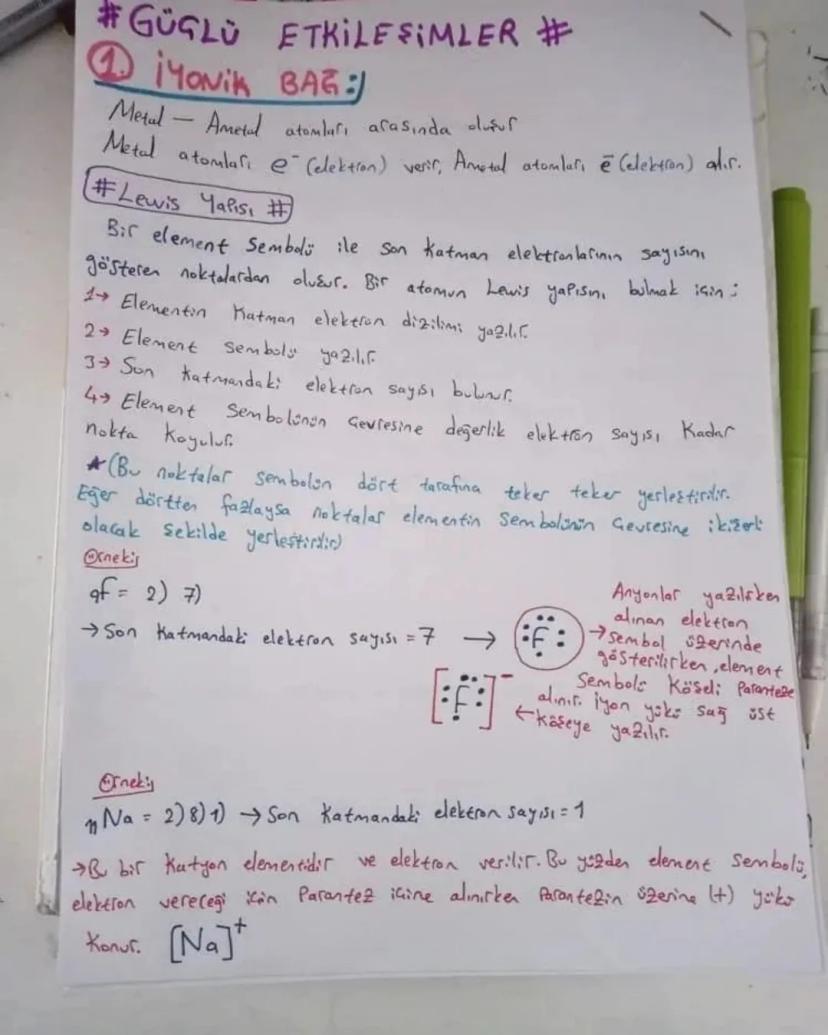 # GÜÇLÜ ETKİLEŞİMLER #
1. İYONİK BAĞ:)
Metal — Ametal atomları arasında oluşur
Metal atomları e⁻ (elektron) verir, Ametal atomları ē (elektron) alır.
# Lewis Yapısı #
Bir element Sembolü ile son katman elektronlarının sayısını
gösteren noktalardan oluşur. Bir atomun Lewis yapısını bulmak için:
1→ Elementin Katman elektron dizilimi yazılır.
2→ Element sembolü yazılır
3→ Son katmandaki elektron sayısı bulunur.
4→ Element Sembolünün Çevresine değerlik elektron sayısı Kadar
nokta Koyulur.
★(Bu noktalar sembolün dört tarafına teker teker yerleştirilir.
Eğer dörtten fazlaysa noktalar elementin Sembolünün Çevresine ikişerli
olacak şekilde yerleştirilir)
Örnek;
₉F = 2) 7)
→ Son Katmandaki elektron sayısı = 7 → F
Anyonlar yazılırken
alınan elektron
→ Sembol üzerinde
gösterilirken, element
Sembolü Köşeli Paranteze
alınır. İyon yükü sağ üst
← Köşeye yazılır.
[F]⁻
Örnek;
₁₁Na = 2)8)1) → Son Katmandaki elektron sayısı = 1
→ Bu bir Katyon elementidir ve elektron verilir. Bu yüzden element Sembolü,
elektron vereceği için Parantez içine alınırken Parantezin üzerine (+) yükü
Konur. [Na]⁺